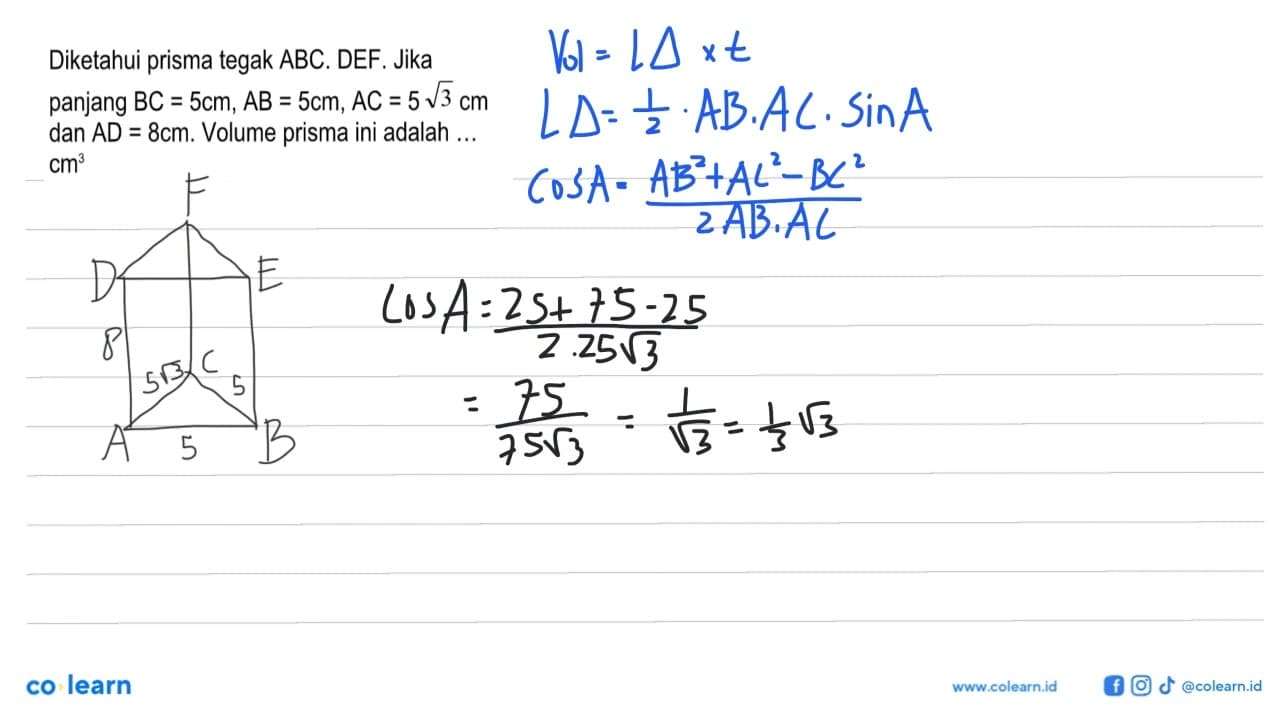 Diketahui prisma tegak ABC. DEF. Jika
panjang BC = 5cm, AB = 5cm, AC = 5 √3 cm
dan AD = 8cm. Volume prisma ini adalah ...
cm³
Vol = L△ × t
L△ = 1/2 · AB . AC . sin A
Cos A = (AB² + AC² - BC²) / (2 AB . AC)
F
D
E
8
5√3
C
5
A
5
B
Cos A = (25 + 75 - 25) / (2 . 25√3)
= 75 / 75√3 = 1/√3 = 1/3 √3
co learn
www.colearn.id
@colearn.id